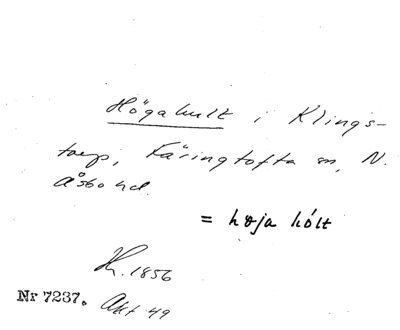 Högahult i Klings-
torp, Färingtofta sn, N.
Åsbo hd.
= høja hólt
Hr. 1856
Nr 7237. Akt 49